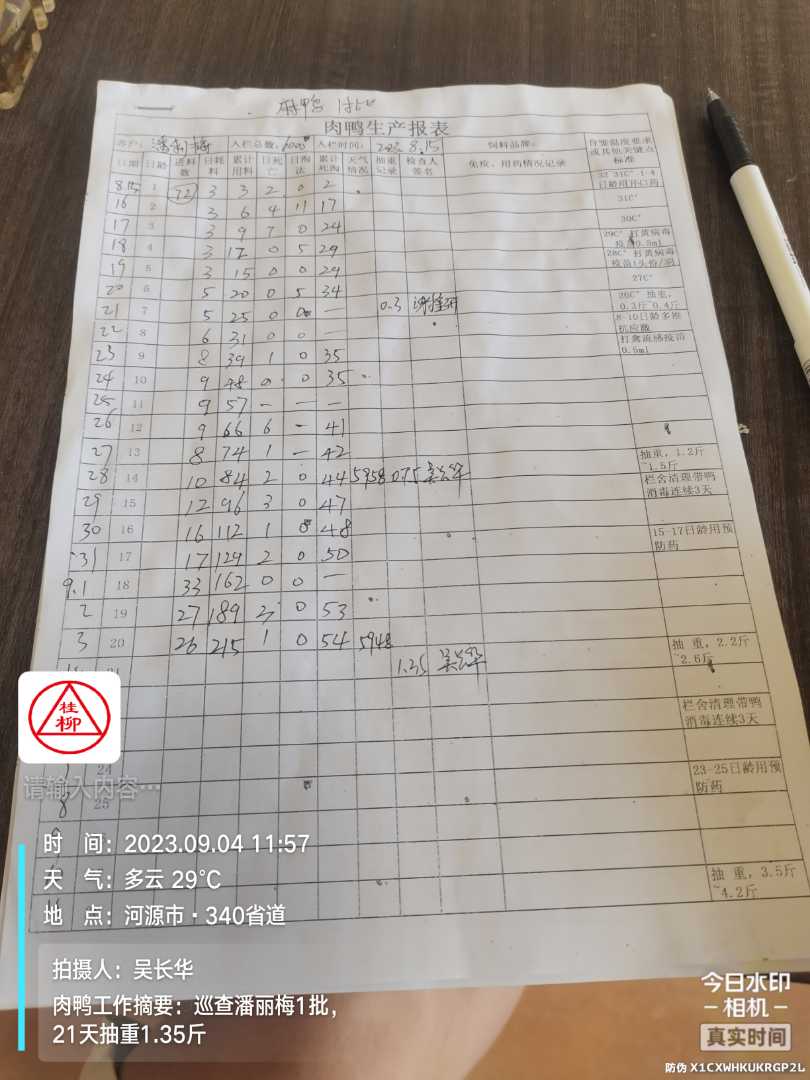 肉鸭生产报表
客户: 潘丽梅 入栏总数: 6000 入栏时间: 2023 8.15 饲料品牌: 各要温度要求或其他关键点标准
日期 日龄 进料数 日耗料 累计用料 日死亡 日淘汰 累计死淘 天气情况 抽重记录 检查人签名 免疫、用药情况记录
8.15 1 72 3 3 2 0 2 32-31C° 1-4日龄用开口药
16 2 3 6 4 11 17 31C°
17 3 3 9 7 0 24 30C°
18 4 3 12 0 5 29 29C° 打黄病毒疫苗0.5ml
19 5 3 15 0 0 29 28C° 打黄病毒
20 6 5 20 0 5 34 27C°
21 7 5 25 0 0 — 0.3 26C° 抽重, 0.3斤~0.4斤
22 8 6 31 0 0 — 8-10日龄多维抗应激
23 9 8 39 1 0 35 打禽流感疫苗0.5ml
24 10 9 48 0 0 35
25 11 9 57 — — —
26 12 9 66 6 — 41
27 13 8 74 1 — 42 抽重, 1.2斤~1.5斤
28 14 10 84 2 0 44 5958 0.75 吴长华 栏舍清理带鸭消毒连续3天
29 15 12 96 3 0 47
30 16 16 112 1 0 48 15-17日龄用预防药
31 17 17 129 2 0 50
9.1 18 33 162 0 0 —
2 19 27 189 3 0 53
3 20 26 215 1 0 54 5948 抽 重, 2.2斤~2.6斤
21 1.35 吴长华
栏舍清理带鸭消毒连续3天
24 23-25日龄用预防药
8 25
9
抽 重, 3.5斤~4.2斤
桂柳
请输入内容…
时 间: 2023.09.04 11:57
天 气: 多云 29℃
地 点: 河源市·340省道
拍摄人: 吴长华
肉鸭工作摘要: 巡查潘丽梅1批,
21天抽重1.35斤
今日水印
相机
真实时间
防伪 X1CXWHKUKRGP2L